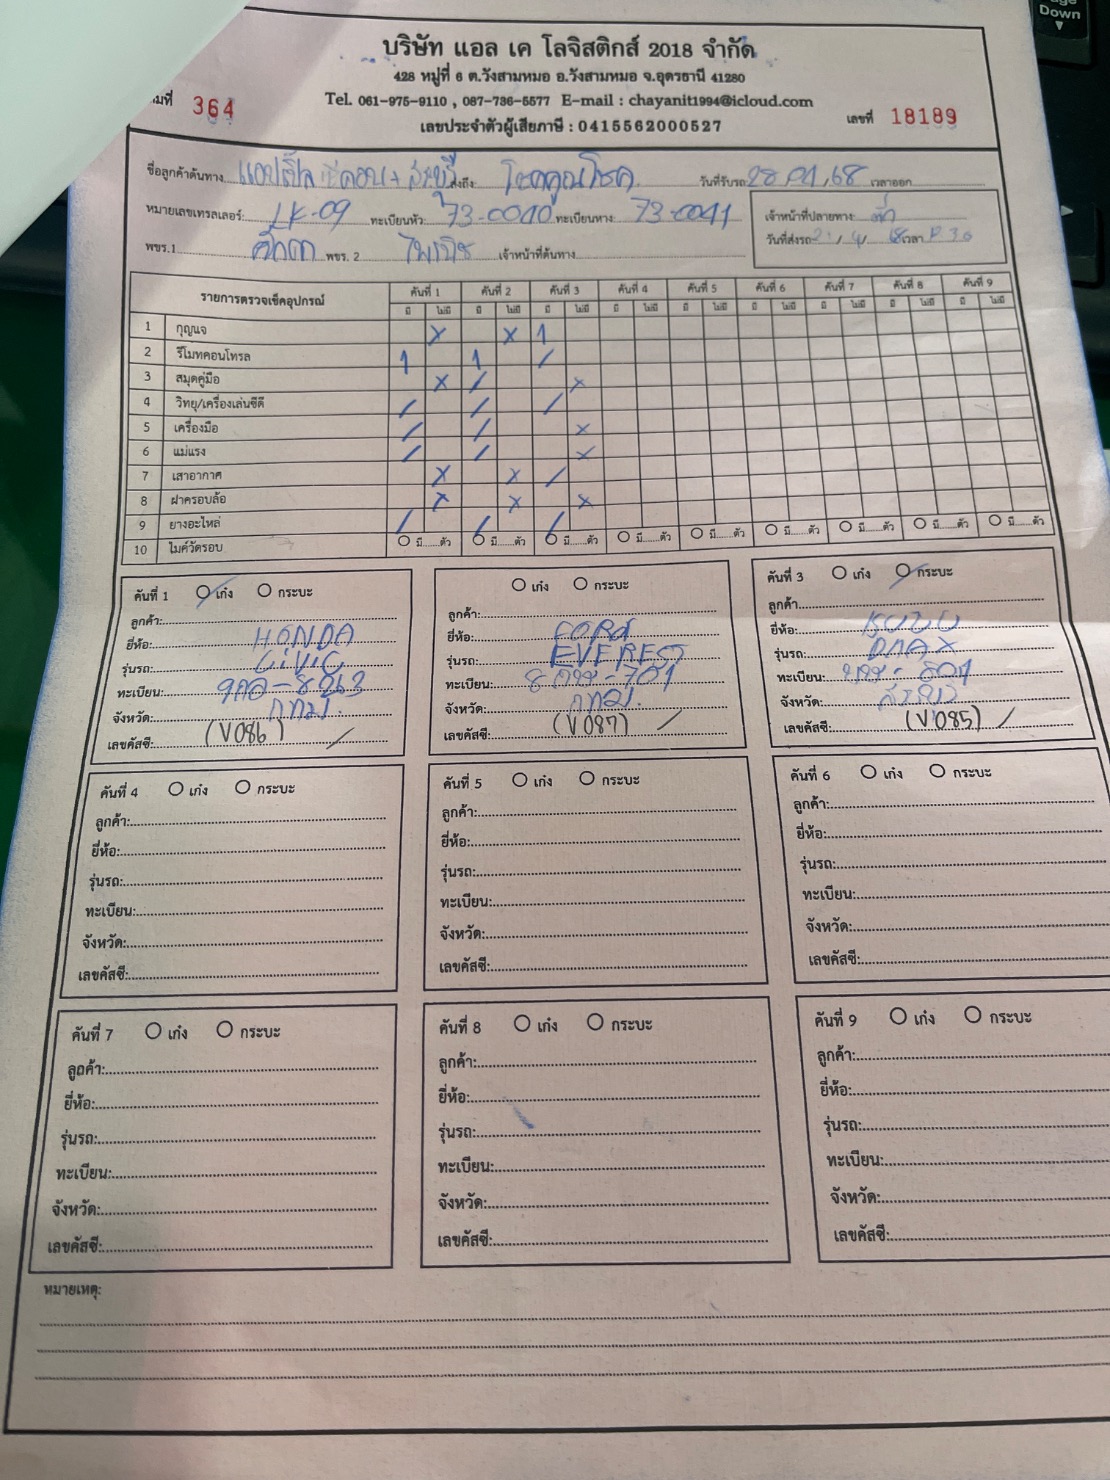 Down
บริษัท แอล เค โลจิสติกส์ 2018 จำกัด
428 หมู่ที่ 6 ต.วังสามหมอ อ.วังสามหมอ จ.อุดรธานี 41280
Tel. 061-975-9110 , 087-736-5577 E-mail : chayanit1994@icloud.com
เลขประจำตัวผู้เสียภาษี : 0415562000527
มที่ 364
เลขที่ 18189
ชื่อลูกค้าต้นทาง ส่งถึง: โชคคูณโชค วันที่รับรถ 28,04,68 เวลาออก
หมายเลขเทรลเลอร์: LK-09 ทะเบียนหัว: 73-0040 ทะเบียนหาง: 73-0041
เจ้าหน้าที่ปลายทาง:
วันที่ส่งรถ เวลา
พขร.1 พขร. 2 เจ้าหน้าที่ต้นทาง
รายการตรวจเช็คอุปกรณ์ คันที่ 1 คันที่ 2 คันที่ 3 คันที่ 4 คันที่ 5 คันที่ 6 คันที่ 7 คันที่ 8 คันที่ 9
มี ไม่มี มี ไม่มี มี ไม่มี มี ไม่มี มี ไม่มี มี ไม่มี มี ไม่มี มี ไม่มี มี ไม่มี
1 กุญแจ x x 1
2 รีโมทคอนโทรล 1 1 /
3 สมุดคู่มือ x / x
4 วิทยุ/เครื่องเล่นซีดี / / /
5 เครื่องมือ / / x
6 แม่แรง / / x
7 เสาอากาศ x x /
8 ฝาครอบล้อ x x x
9 ยางอะไหล่ / / /
10 ไมค์วัดรอบ มี......ตัว มี......ตัว มี......ตัว มี......ตัว มี......ตัว มี......ตัว มี......ตัว มี......ตัว มี......ตัว
คันที่ 1 เก๋ง กระบะ
ลูกค้า:
ยี่ห้อ: HONDA
รุ่นรถ: CIVIC
ทะเบียน:
จังหวัด: กทม.
เลขคัสซี: (V086) /
เก๋ง กระบะ
ลูกค้า:
ยี่ห้อ: FORD
รุ่นรถ: EVEREST
ทะเบียน:
จังหวัด: กทม.
เลขคัสซี: (V087) /
คันที่ 3 เก๋ง กระบะ
ลูกค้า
ยี่ห้อ: ISUZU
รุ่นรถ: DMAX
ทะเบียน:
จังหวัด: สระบุรี
เลขคัสซี: (V085) /
คันที่ 4 เก๋ง กระบะ
ลูกค้า:
ยี่ห้อ:
รุ่นรถ:
ทะเบียน:
จังหวัด:
เลขคัสซี:
คันที่ 5 เก๋ง กระบะ
ลูกค้า:
ยี่ห้อ:
รุ่นรถ:
ทะเบียน:
จังหวัด:
เลขคัสซี:
คันที่ 6 เก๋ง กระบะ
ลูกค้า:
ยี่ห้อ:
รุ่นรถ:
ทะเบียน:
จังหวัด:
เลขคัสซี:
คันที่ 7 เก๋ง กระบะ
ลูกค้า:
ยี่ห้อ:
รุ่นรถ:
ทะเบียน:
จังหวัด:
เลขคัสซี:
คันที่ 8 เก๋ง กระบะ
ลูกค้า:
ยี่ห้อ:
รุ่นรถ:
ทะเบียน:
จังหวัด:
เลขคัสซี:
คันที่ 9 เก๋ง กระบะ
ลูกค้า:
ยี่ห้อ:
รุ่นรถ:
ทะเบียน:
จังหวัด:
เลขคัสซี:
หมายเหตุ: